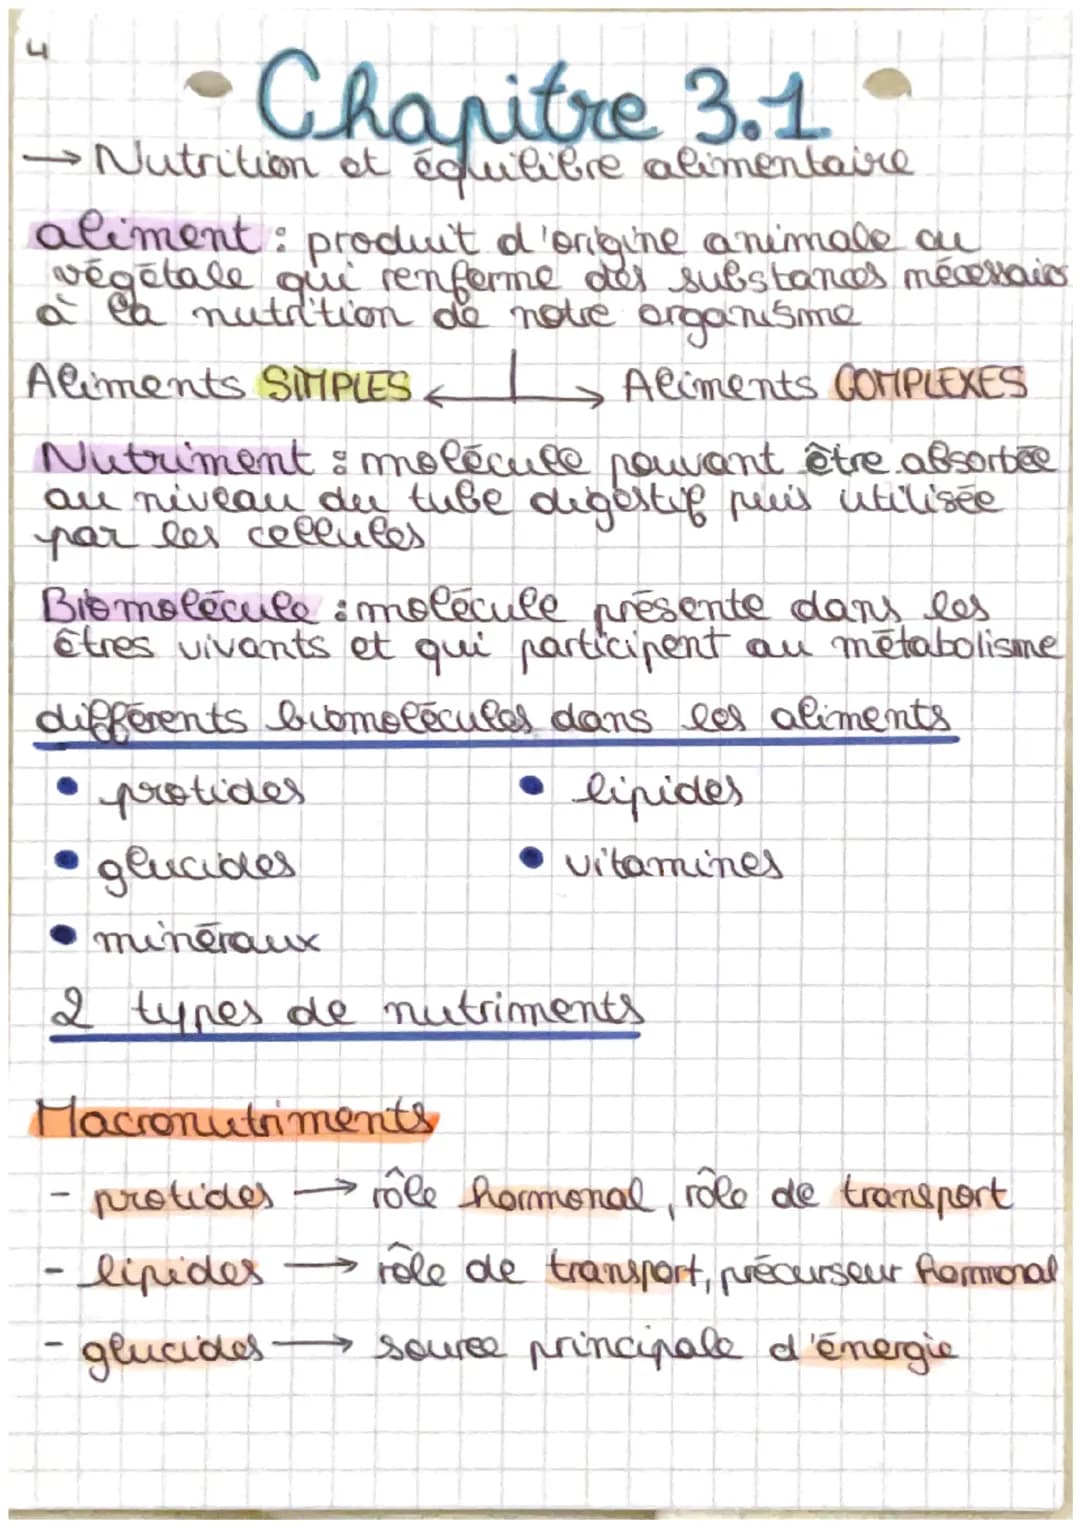 4
Chapitre 3.1
→ Nutrition et équilibre alimentaire
aliment : produit d'origine animale ou
végétale qui renferme des substances nécessaires
à la nutrition de notre organisme
Aliments SIMPLES ← → Aliments COMPLEXES
Nutriment : molécule pouvant être absorbée
au niveau du tube digestif puis utilisée
par les cellules
Biomolécule : molécule présente dans les
êtres vivants et qui participent au métabolisme
différents biomolécules dans les aliments
• protides • lipides
• glucides • vitamines
• minéraux
2 types de nutriments
Macronutriments
- protides → rôle hormonal, rôle de transport
- lipides → rôle de transport, précurseur hormonal
- glucides → source principale d'énergie